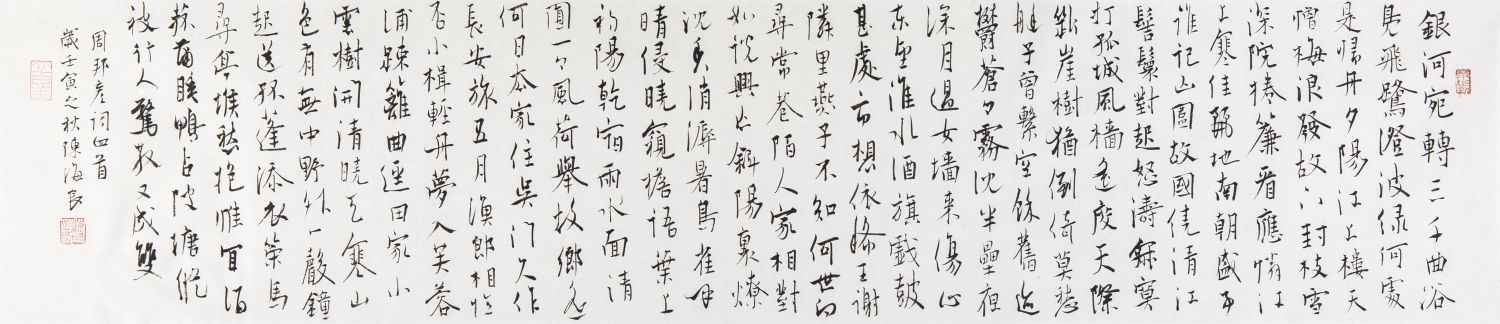 銀河宛轉三千曲浴
鳧飛鷺澄波綠何處
是歸舟夕陽江上樓天
憎梅浪發故下封枝雪
深院捲簾看應憐江
上寒佳麗地南朝盛事
誰記山圍故國繞清江
髻鬟對起怒濤寂寞
打孤城風檣遙度天際
斷崖樹猶倒倚莫愁
艇子曾繫空餘舊迹
鬱蒼々霧沈半壘夜
深月過女墻來傷心
東望淮水酒旗戲鼓
甚處市想依稀王謝
隣里燕子不知何世向
尋常巷陌人家相對
如說興亡斜陽裏燎
沈香消溽暑鳥雀呼
晴侵曉窺檐語葉上
初陽乾宿雨水面清
圓一一風荷舉故鄉遙
何日去家住吳門久作
長安旅五月漁郎相憶
否小楫輕舟夢入芙蓉
浦疎籬曲徑田家小
雲樹開清曉天寒山
色有無中野外一聲鐘
起送孤蓬添衣策馬
尋亭堠愁抱惟宜酒
菰蒲睡鴨占陂塘縱
被行人驚散又成雙
周邦彥詞四首
歲壬寅之秋陳海良